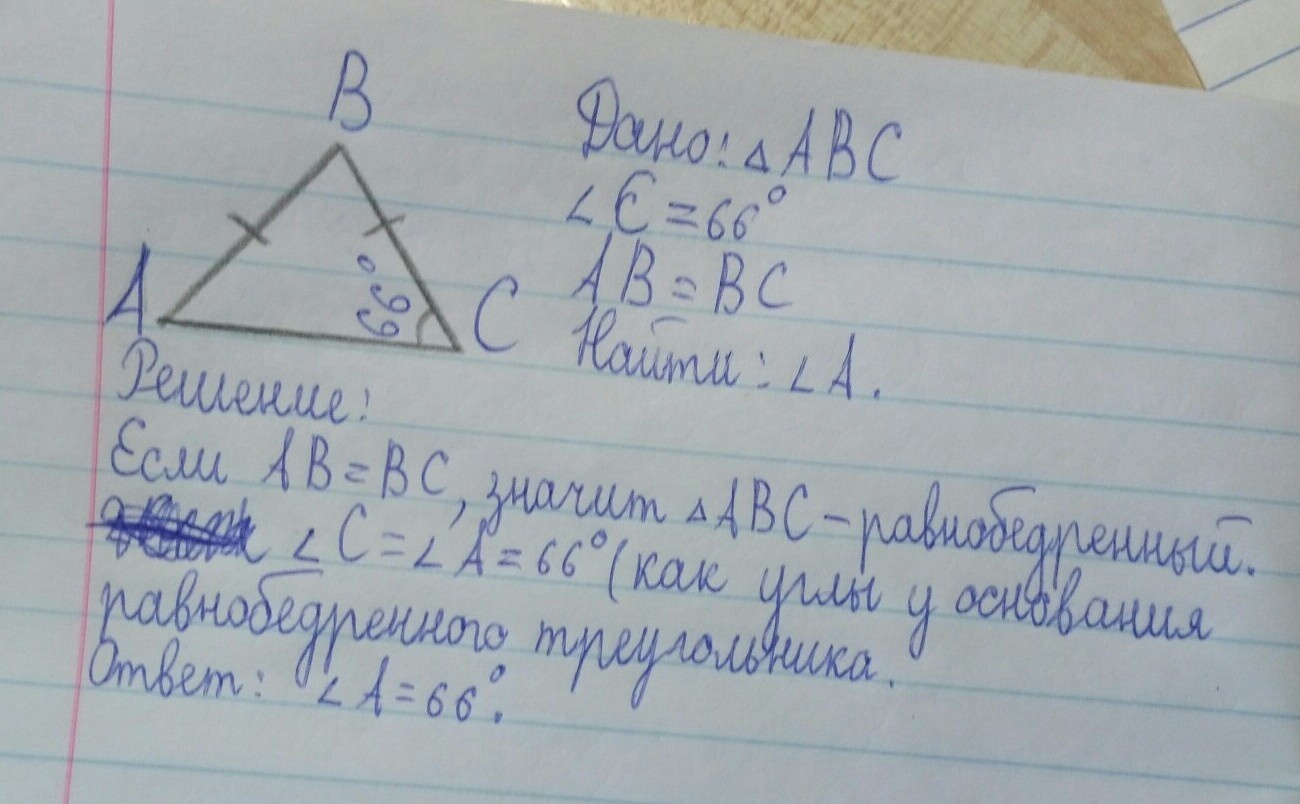 B
Дано: △ABC
∠C = 66°
AB = BC
A
66°
C
Найти: ∠A.
Решение:
Если AB = BC, значит △ABC – равнобедренный.
∠C = ∠A = 66° (как углы у основания
равнобедренного треугольника.
Ответ: ∠A = 66°.